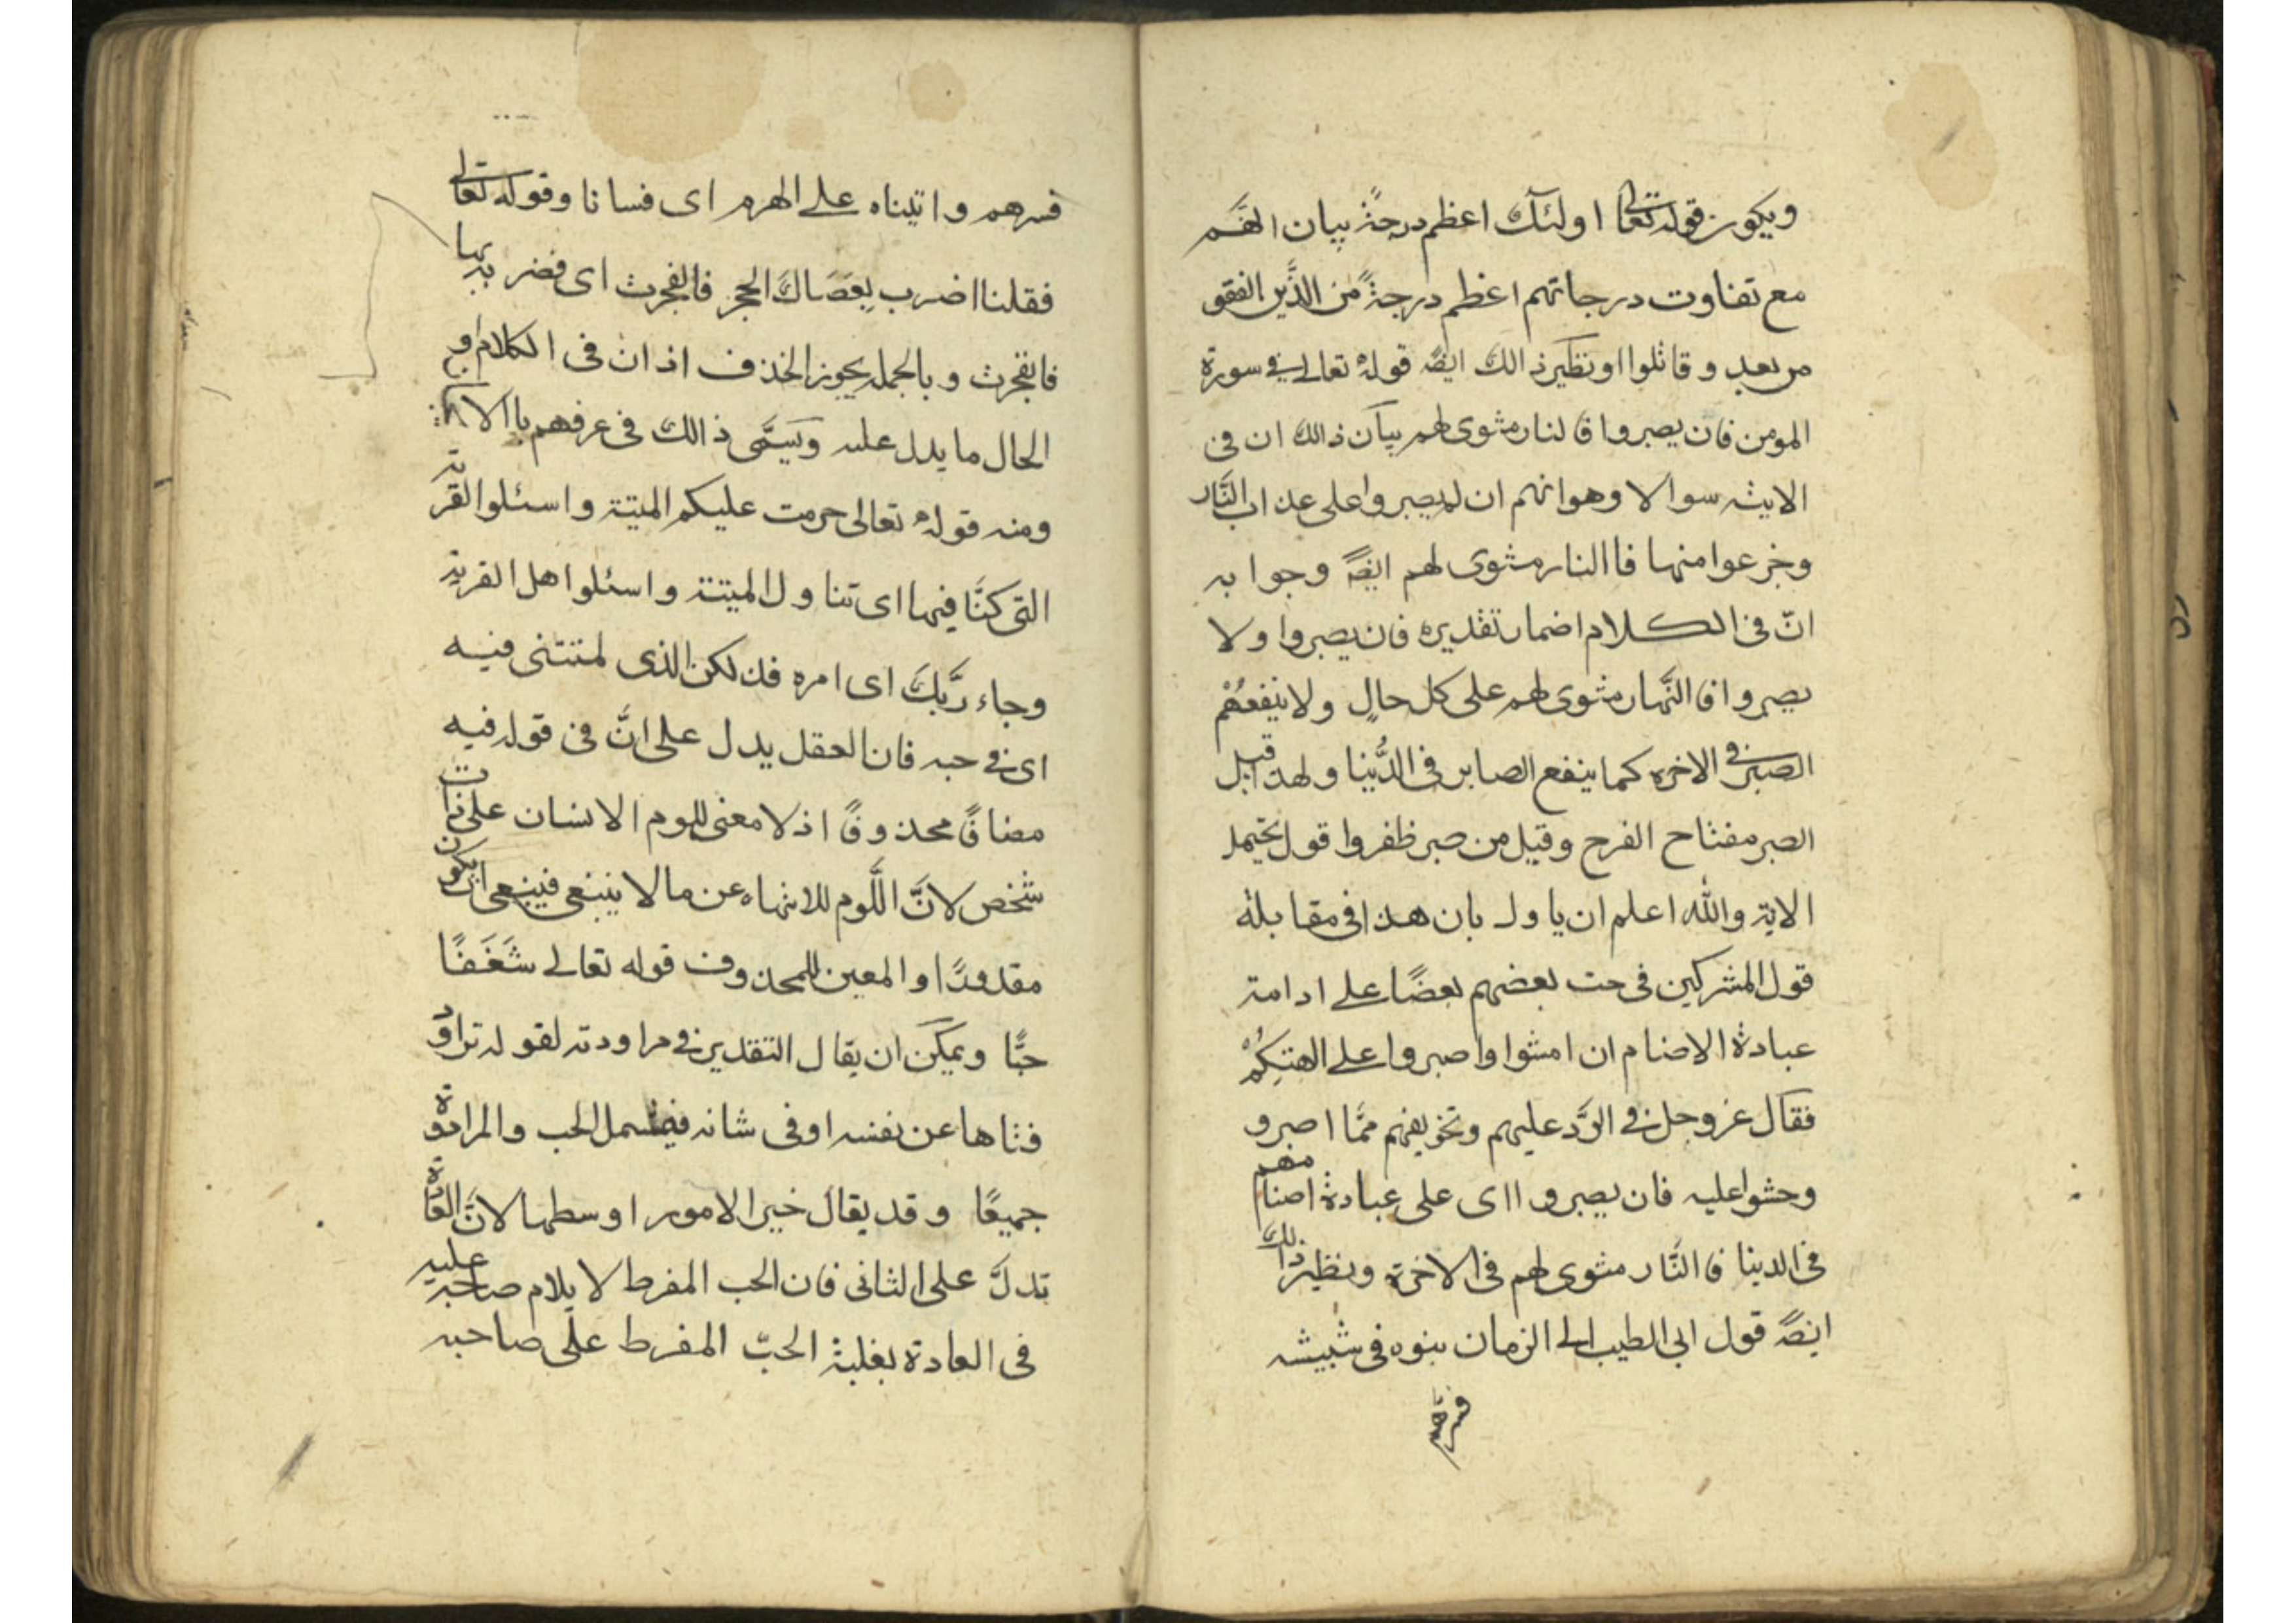 ويكون قوله تعالى اولئك اعظم درجةً بيان انهم
مع تفاوت درجاتهم اعظم درجةً من الذين انفقو
من بعد وقاتلوا او نظير ذالك ايضً قوله تعالى في سورة
المومن فان يصبروا فا لنار مثوى لهم بيان ذالك ان فى
الايته سوالا وهو انهم ان لم يصبروا على عذاب النَّار
وجزعوا منها فاالنار مثوى لهم ايضً وجوابه
انّ فى الكلام اضمار تقديره فان يصبروا ولا
يصبروا فا النَّهار مثوى لهم على كل حالٍ ولا ينفعهُمْ
الصبر في الاخره كما ينفع الصابر فى الدُّنيا ولهذا قيل
الصبر مفتاح الفرج وقيل من صبر ظفر واقول يحتمل
الاية والله اعلم ان ياول بان هذا فى مقابلة
قول المشركين فى حت بعضهم بعضًا على ادامة
عبادة الاصنام ان امشوا واصبروا على الهتكُمْ
فقال عز وجل في الرَّد عليهم وتخويفهم ممَّا اصبرو
وحشوا عليه فان يصبرو اى على عبادة اصنامهم
فى الدينا فا النَّار مثوى لهم فى الاخرة ونظير ذالك
ايضً قول ابى الطيب اتى الزمان بنوه فى شبيبته
فسرهم
فسرهم واتيناه على الهرم اى فسانا وقوله تعالى
فقلنا اضرب بِعَصَاكَ الحجر فانفجرت اى فضربها
فانفجرت وبالجمله يجوز الحذف اذ ان فى الكلام او
الحال ما يدل عليه ويسَمَّى ذالك فى عرفهم باالا
ومنه قوله تعالى حرمت عليكم الميتة واسئلوا القرية
التى كنَّا فيها اى تناول الميتة واسئلوا اهل القرية
وجاء ربَّكَ اى امره فذلكن الذى لمتننى فيه
اى في حبه فان العقل يدل على انَّ فى قوله فيه
مضافً محذوفً اذ لا معنى للوم الانسان على ذات
شخص لانَّ اللَّوم للانتهاء عن ما لا ينبغى فينبغى ان يكون
مقدورًا والمعين للمحذوف قوله تعالى شَغَفَا
حبًّا ويمكن ان يقال التقدير في مراودته لقوله تراود
فتاها عن نفسه او فى شانه فيشمل الحب والمراودة
جميعًا وقد يقال خير الامور اوسطها لانَّ العادة
تدلَّ على الثانى فان الحب المفرط لا يلام صاحبه عليه
فى العادة بغلبة الحبّ المفرط على صاحبه